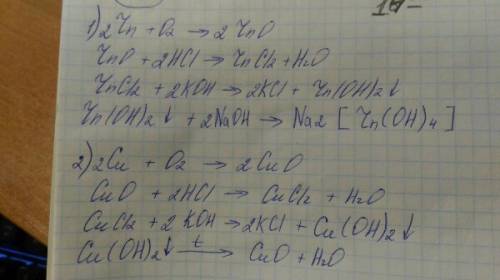 1) 2Zn + O2 → 2ZnO
ZnO + 2HCl → ZnCl2 + H2O
ZnCl2 + 2KOH → 2KCl + Zn(OH)2↓
Zn(OH)2↓ + 2NaOH → Na2[Zn(OH)4]
2) 2Cu + O2 → 2CuO
CuO + 2HCl → CuCl2 + H2O
CuCl2 + 2KOH → 2KCl + Cu(OH)2↓
Cu(OH)2↓ t→ CuO + H2O